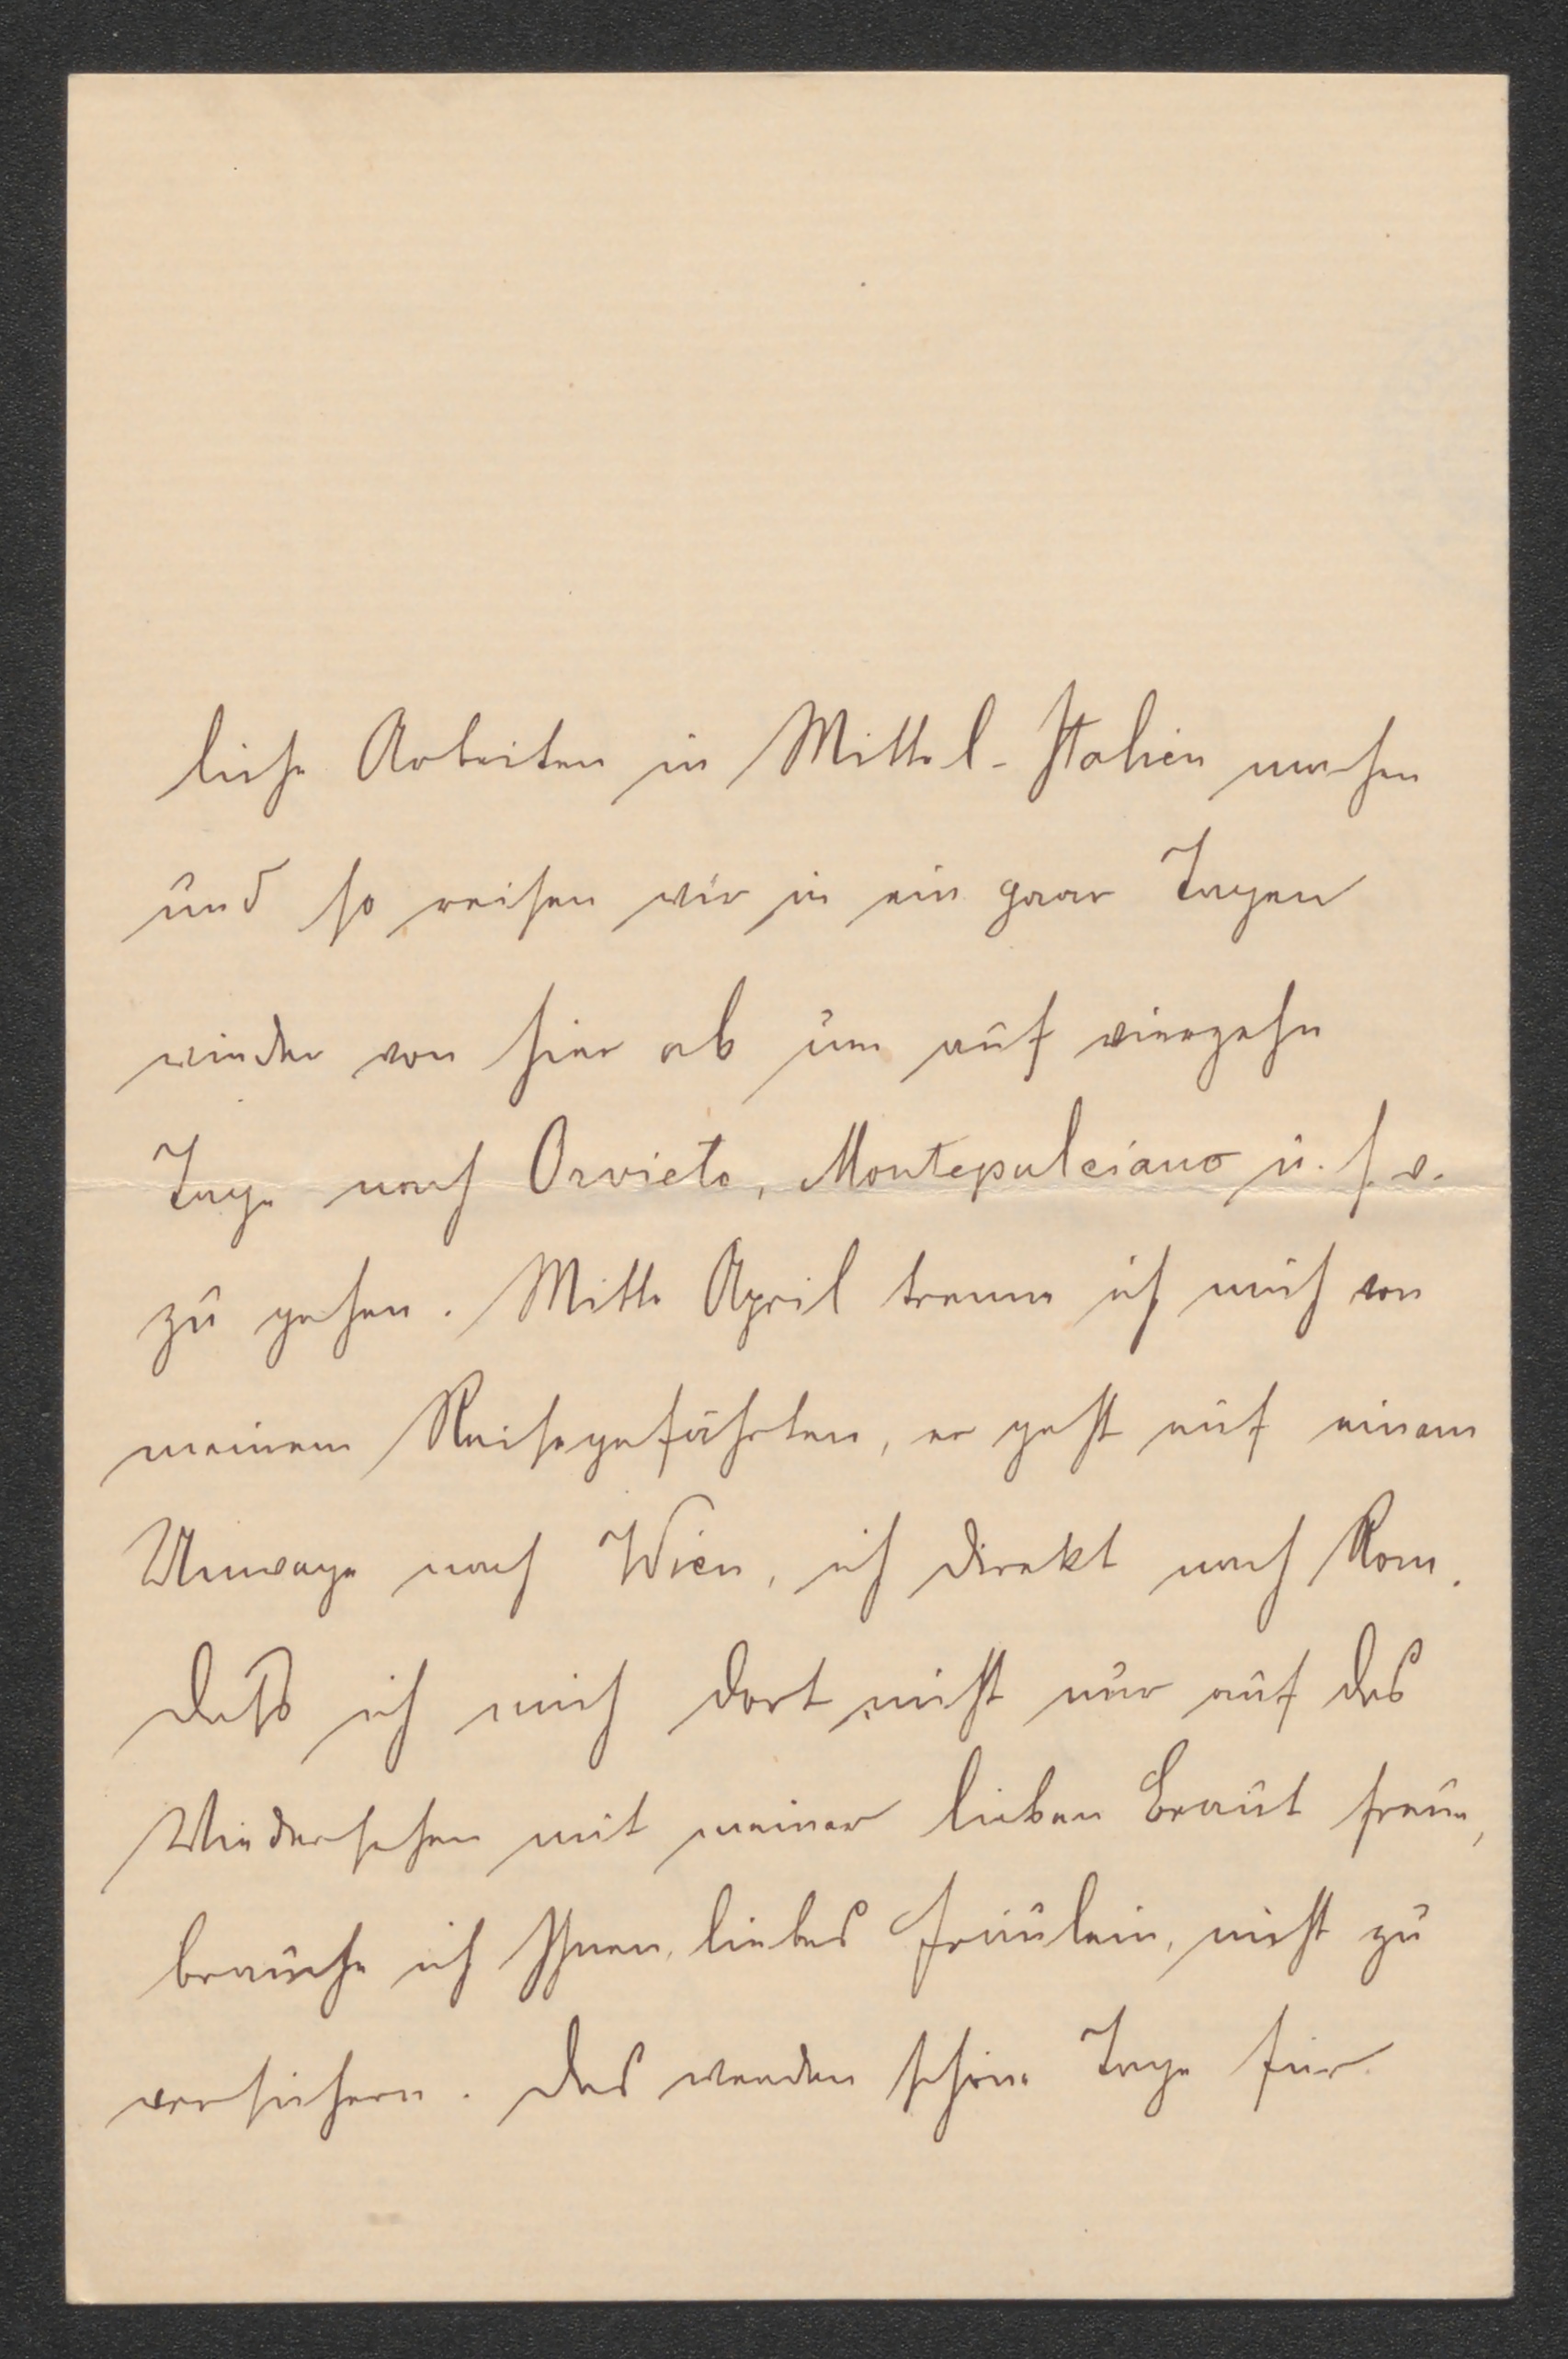 liche Arbeiten in Mittel-Italien machen
und so reisen wir in ein paar Tagen
wieder von hier ab um auf vierzehn
Tage nach Orvieto, Montepulciano u. s. w.
zu gehen. Mitte April trenne ich mich von
meinem Reisegefährten, er geht auf einem
Umwege nach Wien, ich direkt nach Rom.
Daß ich mich dort nicht nur auf das
Wiedersehen mit meiner lieben Braut freue,
brauche ich Ihnen, liebes Fräulein, nicht zu
versichern. Das werden schöne Tage für